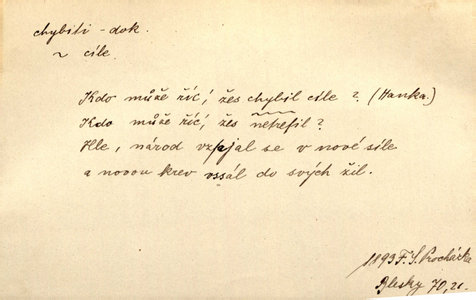 chybiti - dok.
~ cíle.
Kdo může říc', žes chybil cíle? (Hanka.)
Kdo může říc', žes netrefil?
Hle, národ vzpjal se v nové síle
a novou krev vssál do svých žil.
1893 F. S. Procházka
Blesky 70, 21.